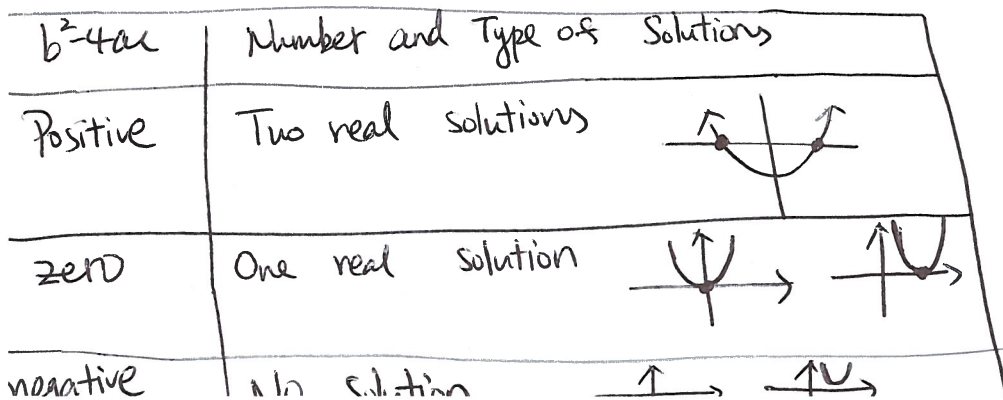 b²-4ac Number and Type of Solutions
Positive Two real solutions
zero One real solution
negative No solution